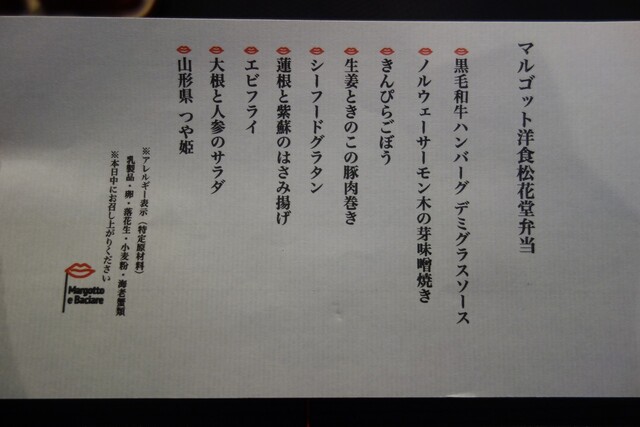 マルゴット洋食松花堂弁当
黒毛和牛ハンバーグ デミグラスソース
ノルウェーサーモン木の芽味噌焼き
きんぴらごぼう
生姜ときのこの豚肉巻き
シーフードグラタン
蓮根と紫蘇のはさみ揚げ
エビフライ
大根と人参のサラダ
山形県 つや姫
※アレルギー表示(特定原材料)
乳製品・卵・落花生・小麦粉・海老蟹類
※本日中にお召し上がりください
Margotto
e Baciare